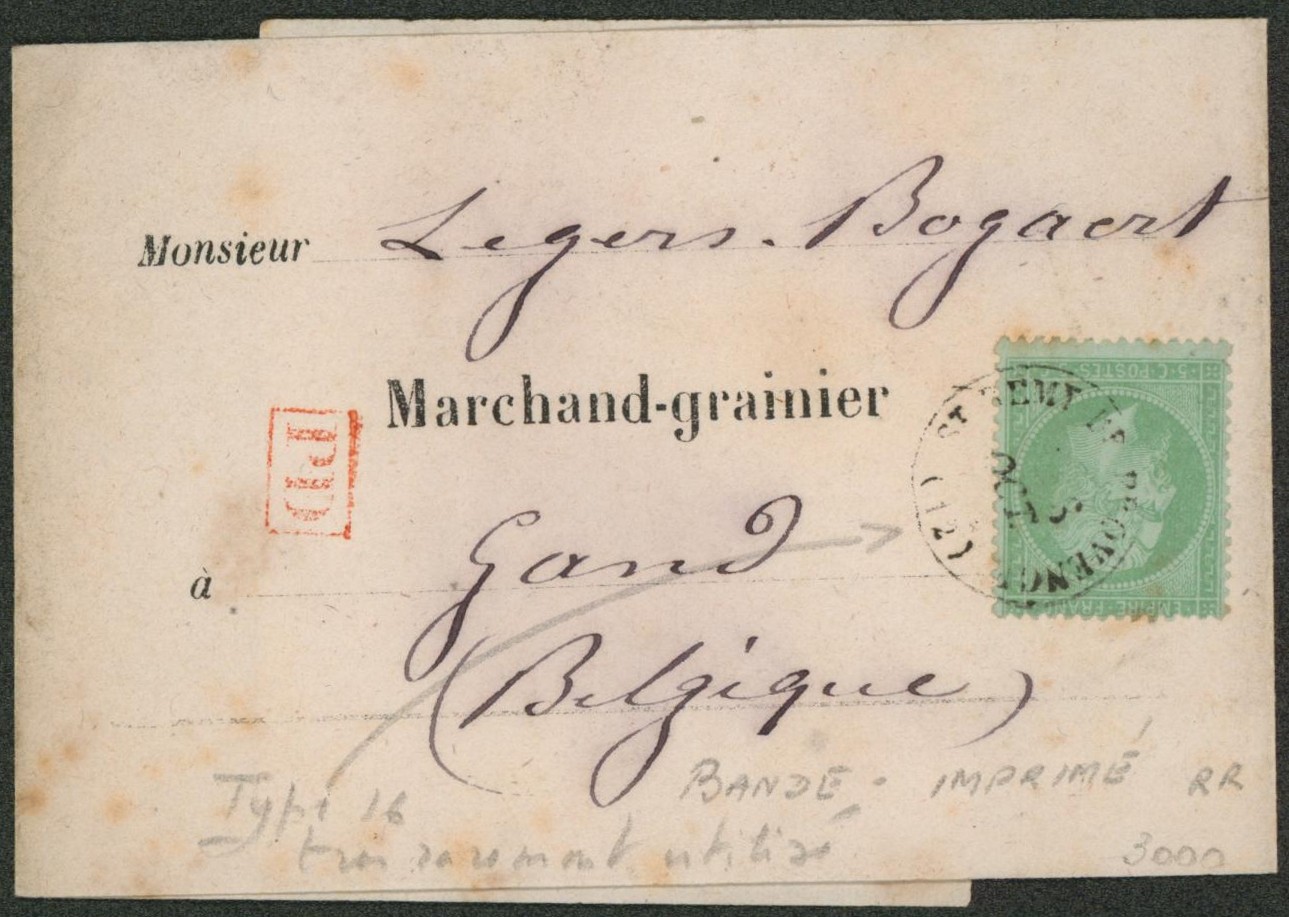 Monsieur Legers-Bogaert
Marchand-grainier
PD
à Gand
(Belgique)
5·C·POSTES
EMPIRE·FRANC
ST REMY DE PROVENCE (12)
Type 16
très rarement utilisé
BANDE - IMPRIMÉ RR
3000